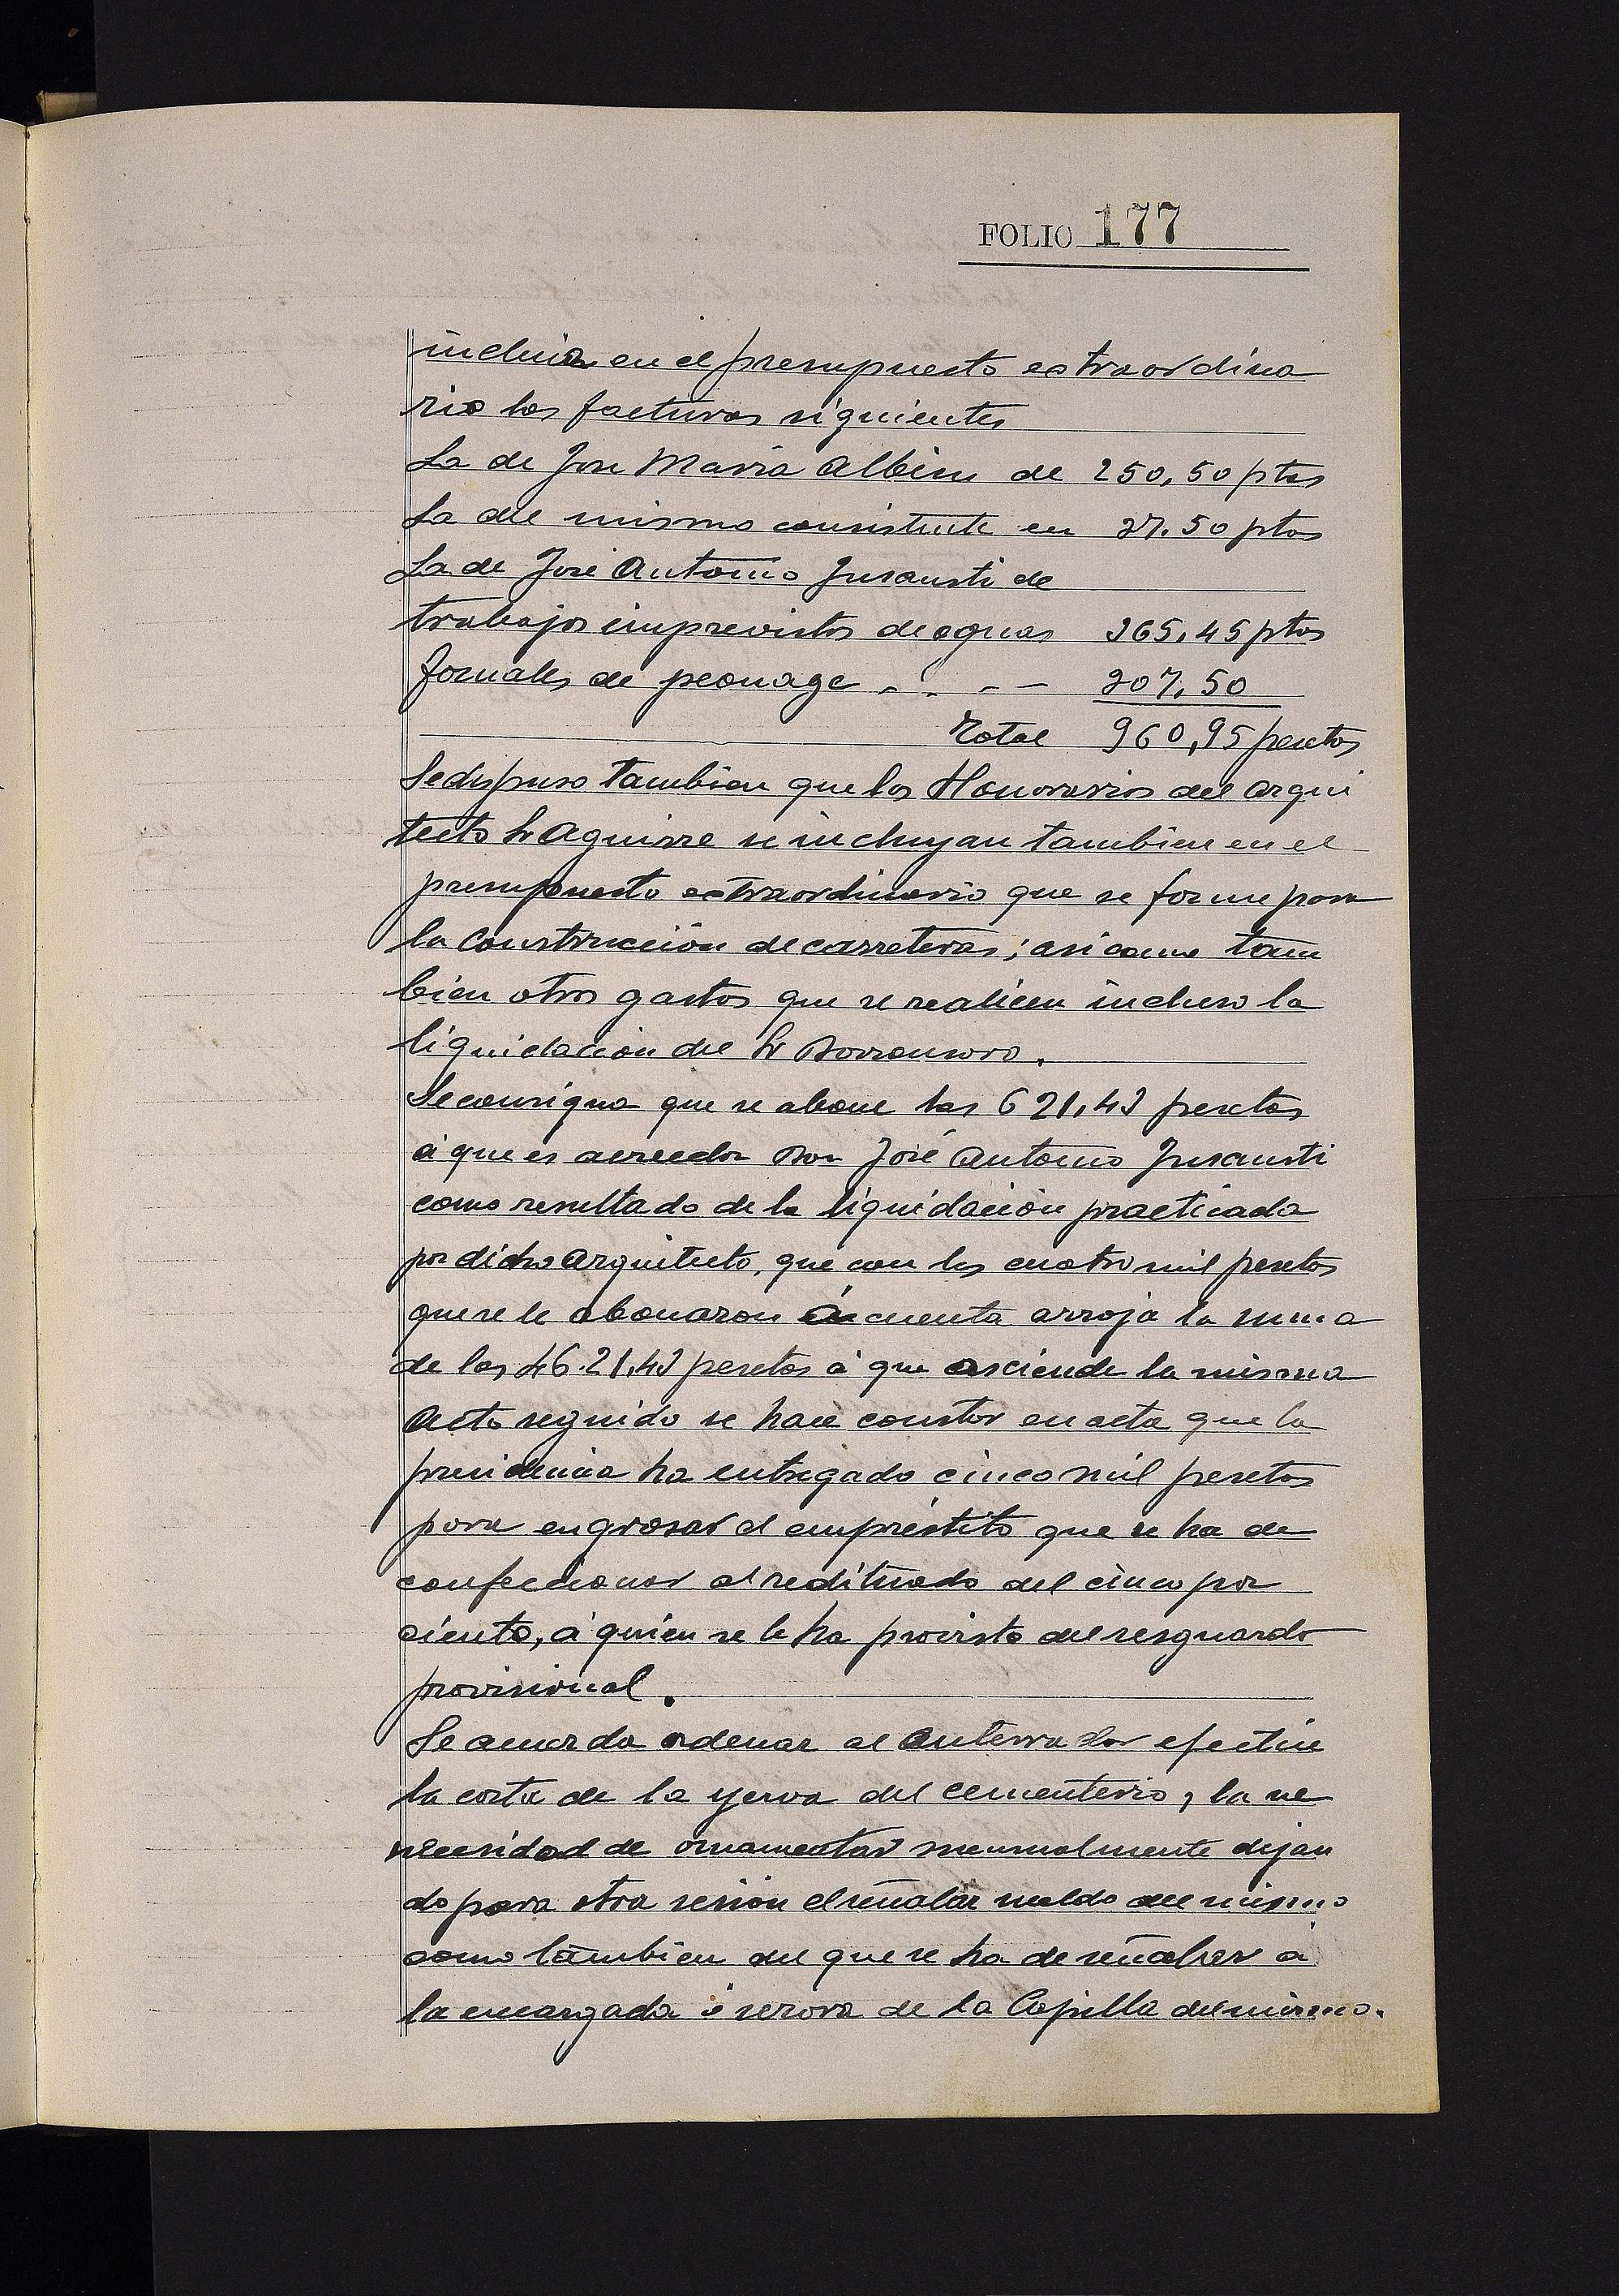 FOLIO 177
incluir en el presupuesto extraordina
rio las facturas siguientes
La de Jose Maria Albisu de 250,50 ptas
La del mismo consistente en 37.50 ptas
La de José Antonio Insausti de
trabajos imprevistos de aguas 365,45 ptas
Jornales de peonage . . . — 307,50
Total 960,95 pesetas
Se dispuso tambien que los Honorarios del arqui
tecto Sr Aguirre se incluyan tambien en el
presupuesto extraordinario que se forme para
la Construcción de carreteras; asi como tam
bien otros gastos que se realicen incluso la
liquidación del Sr Dorronsoro.
Se consigna que se abone las 621,43 pesetas
á que es acreedor Don José Antonio Insausti
como resultado de la liquidación practicada
por dicho arquitecto, que con las cuatro mil pesetas
que se le abonaron á cuenta arroja la suma
de las 46.21,43 pesetas á que asciende la misma
Acto seguido se hace constar en acta que la
presidencia ha entregado cinco mil pesetas
para engrosar el empréstito que se ha de
confeccionar al redituado del cinco por
ciento, á quien se le ha provisto del resguardo
provisional.
Se acuerda ordenar al enterrador efectúe
la corta de la yerva del cementerio, la ne
necesidad de ornamentar mensualmente dejan
do para otra sesión el señalar sueldo del mismo
como tambien del que se ha de señalar a
la encargada ó serora de la Capilla del mismo.